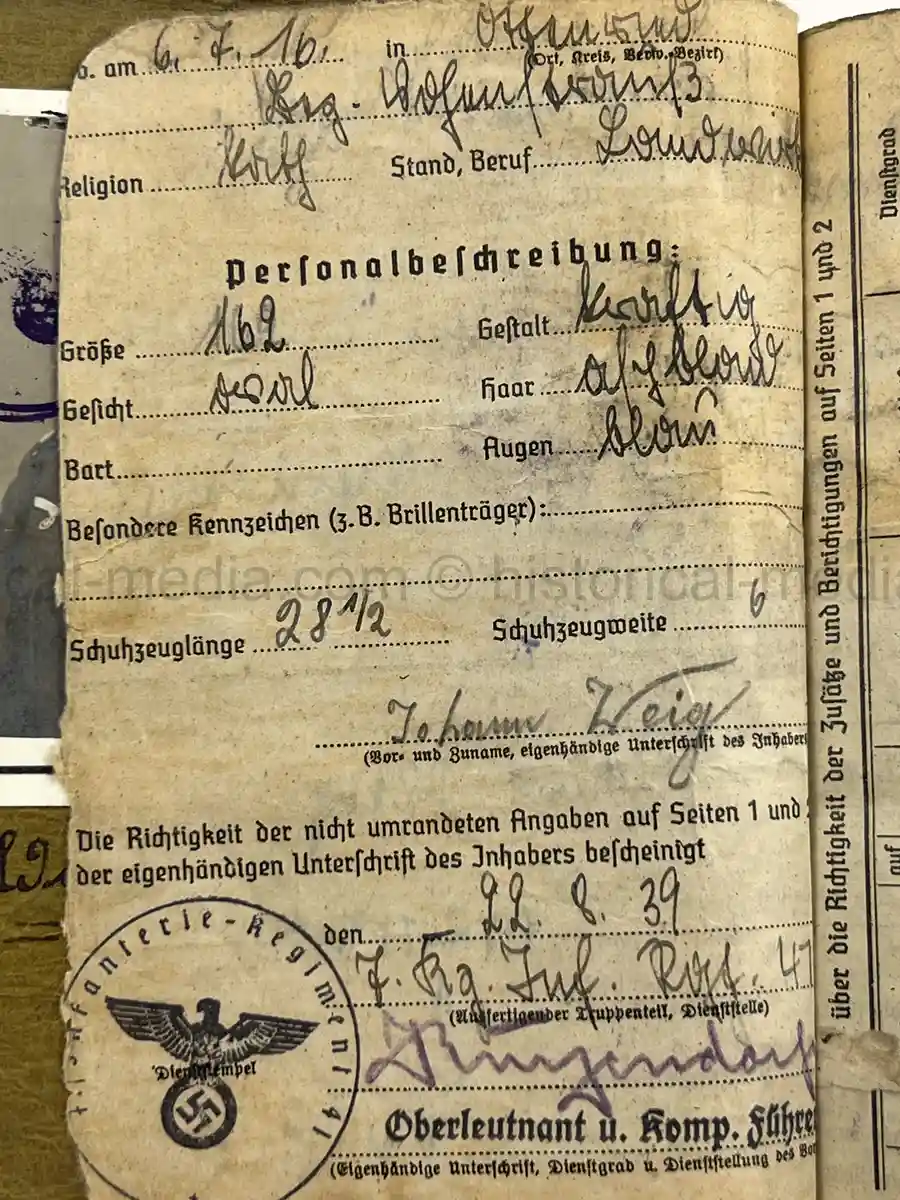 b. am 6. 7. 16. in
(Ort, Kreis, Verw.-Bezirk)
Bez. Vohenstrauß
Religion kath Stand, Beruf Landwirt
Personalbeschreibung:
Größe 162 Gestalt kräftig
Gesicht oval Haar aschblond
Bart Augen blau
Besondere Kennzeichen (z.B. Brillenträger):
Schuhzeuglänge 28 1/2 Schuhzeugweite 6
Johann Weig
(Vor- und Zuname, eigenhändige Unterschrift des Inhabers
Die Richtigkeit der nicht umrandeten Angaben auf Seiten 1 und 2
der eigenhändigen Unterschrift des Inhabers bescheinigt
den 22. 8. 39
7. Inf. 41
(Ausfertigender Truppenteil, Dienststelle)
Infanterie-Regiment 41
Dienststempel
Oberleutnant u. Komp. Führe
(Eigenhändige Unterschrift, Dienstgrad u. Dienststellung des
über die Richtigkeit der Zusätze und Berichtigungen auf Seiten 1 und 2
Dienstgrad
auf
cal-media.com © historical-media